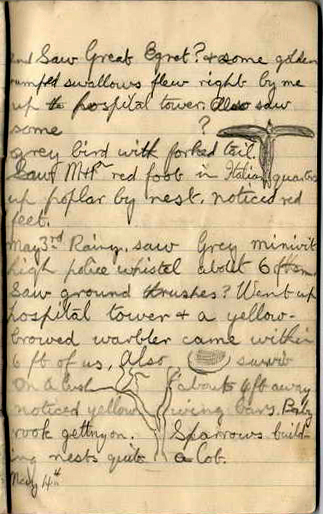 and Saw Great Egret? & some golden
rumped swallows flew right by me
up hospital tower. Also saw
some ?
grey bird with forked tail.
Saw M+F red foot in Italian quarters
up poplar by nest. noticed red
feet.
May 3rd Rainy. saw Grey minivit
high police whistel about 6
Saw ground thrushes? Went up
hospital tower & a yellow-
browed warbler came within
6 ft of us. Also
On a bush about 4ft away
noticed yellow wing bars. Baby
rook getting on. Sparrows build-
ing nests quite a lot.
May 4th